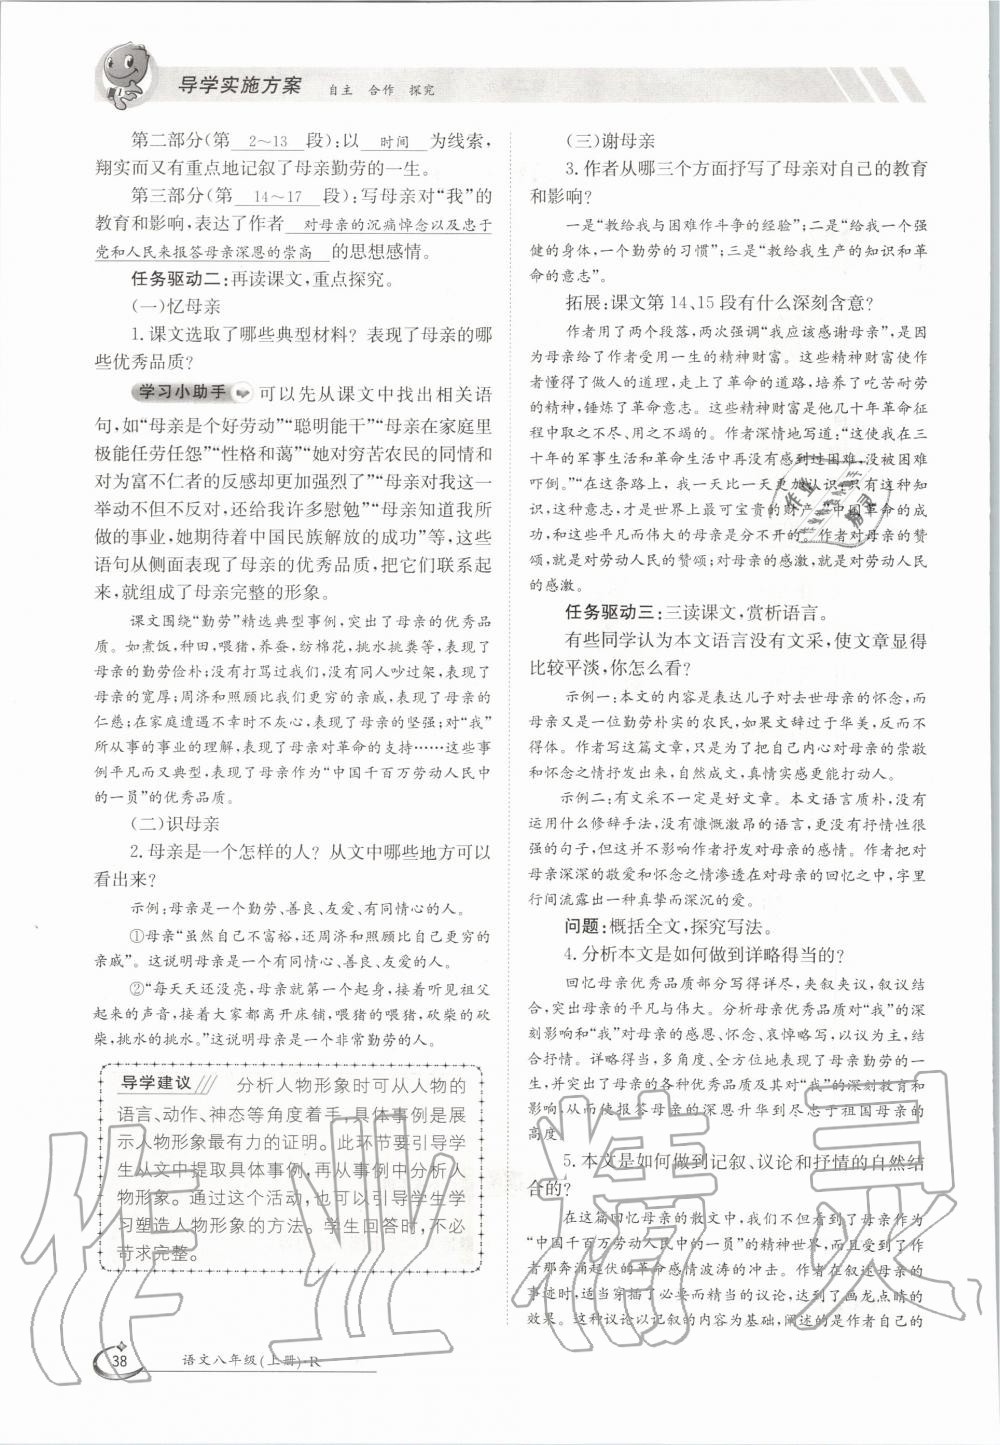 导学实施方案 自主 合作 探究
第二部分(第 2～13 段):以 时间 为线索,
翔实而又有重点地记叙了母亲勤劳的一生。
第三部分(第 14～17 段):写母亲对“我”的
教育和影响,表达了作者 对母亲的沉痛悼念以及忠于
党和人民来报答母亲深恩的崇高 的思想感情。
任务驱动二:再读课文,重点探究。
(一)忆母亲
1. 课文选取了哪些典型材料? 表现了母亲的哪
些优秀品质?
学习小助手 可以先从课文中找出相关语
句,如“母亲是个好劳动”“聪明能干”“母亲在家庭里
极能任劳任怨”“性格和蔼”“她对穷苦农民的同情和
对为富不仁者的反感却更加强烈了”“母亲对我这一
举动不但不反对,还给我许多慰勉”“母亲知道我所
做的事业,她期待着中国民族解放的成功”等,这些
语句从侧面表现了母亲的优秀品质,把它们联系起
来,就组成了母亲完整的形象。
课文围绕“勤劳”精选典型事例,突出了母亲的优秀品
质。如煮饭,种田,喂猪,养蚕,纺棉花,挑水挑粪等,表现了
母亲的勤劳俭朴;没有打骂过我们,没有同人吵过架,表现了
母亲的宽厚;周济和照顾比我们更穷的亲戚,表现了母亲的
仁慈;在家庭遭遇不幸时不灰心,表现了母亲的坚强;对“我”
所从事的事业的理解,表现了母亲对革命的支持……这些事
例平凡而又典型,表现了母亲作为“中国千百万劳动人民中
的一员”的优秀品质。
(二)识母亲
2. 母亲是一个怎样的人? 从文中哪些地方可以
看出来?
示例:母亲是一个勤劳、善良、友爱、有同情心的人。
①母亲“虽然自己不富裕,还周济和照顾比自己更穷的
亲戚”。这说明母亲是一个有同情心、善良、友爱的人。
②“每天天还没亮,母亲就第一个起身,接着听见祖父
起来的声音,接着大家都离开床铺,喂猪的喂猪,砍柴的砍
柴,挑水的挑水。”这说明母亲是一个非常勤劳的人。
导学建议 分析人物形象时可从人物的
语言、动作、神态等角度着手,具体事例是展
示人物形象最有力的证明。此环节要引导学
生从文中提取具体事例,再从事例中分析人
物形象。通过这个活动,也可以引导学生学
习塑造人物形象的方法。学生回答时,不必
苛求完整。
38 语文八年级(上册)·R
(三)谢母亲
3. 作者从哪三个方面抒写了母亲对自己的教育
和影响?
一是“教给我与困难作斗争的经验”;二是“给我一个强
健的身体,一个勤劳的习惯”;三是“教给我生产的知识和革
命的意志”。
拓展:课文第 14、15 段有什么深刻含意?
作者用了两个段落,两次强调“我应该感谢母亲”,是母
亲给了作者受用一生的精神财富。这些精神财富使作
者懂得了做人的道理,走上了革命的道路,培养了吃苦耐劳
的精神,锤炼了革命意志。这些精神财富是他几十年革命征
程中取之不尽、用之不竭的。作者深情地写道:“这使我在三
十年的军事生活和革命生活中再没有感到过困难,没被困难
吓倒。”“在这条路上,我一天比一天更加认识:只有这种知
识,这种意志,才是世界上最可宝贵的财产。”中国革命的成
功,和这些平凡而伟大的母亲是分不开的。作者对母亲的赞
颂,就是对劳动人民的赞颂;对母亲的感激,就是对劳动人民
的感激。
任务驱动三:三读课文,赏析语言。
有些同学认为本文语言没有文采,使文章显得
比较平淡,你怎么看?
示例一:本文的内容是表达儿子对去世母亲的怀念,而
母亲又是一位勤劳朴实的农民,如果文辞过于华美,反而不
得体。作者写这篇文章,只是为了把自己内心对母亲的崇敬
和怀念之情抒发出来,自然成文,真情实感更能打动人。
示例二:有文采不一定是好文章。本文语言质朴,没有
运用什么修辞手法,没有慷慨激昂的语言,更没有抒情性很
强的句子,但这并不影响作者抒发对母亲的感情。作者把对
母亲深深的敬爱和怀念之情渗透在对母亲的回忆之中,字里
行间流露出一种真挚而深沉的爱。
问题:概括全文,探究写法。
4. 分析本文是如何做到详略得当的?
回忆母亲优秀品质部分写得详尽,夹叙夹议,叙议结
合,突出母亲的平凡与伟大。分析母亲优秀品质对“我”的深
刻影响和“我”对母亲的感恩、怀念、哀悼略写,以议为主,结
合抒情。详略得当,多角度、全方位地表现了母亲勤劳的一
生,并突出表现了母亲的各种优秀品质及其对“我”的深刻教育和
影响,从而使报答母亲的深恩升华到尽忠于祖国母亲的
高度。
5. 本文是如何做到记叙、议论和抒情的自然结
合的?
在这篇回忆母亲的散文中,我们不但看到了母亲作为
“中国千百万劳动人民中的一员”的精神世界,而且受到了作
者那奔涌起伏的革命感情波涛的冲击。作者在叙述母亲的
事迹时,适当穿插了必要而精当的议论,达到了画龙点睛的效
果。这种议论以记叙的内容为基础,阐述的是作者自己的
作业精灵